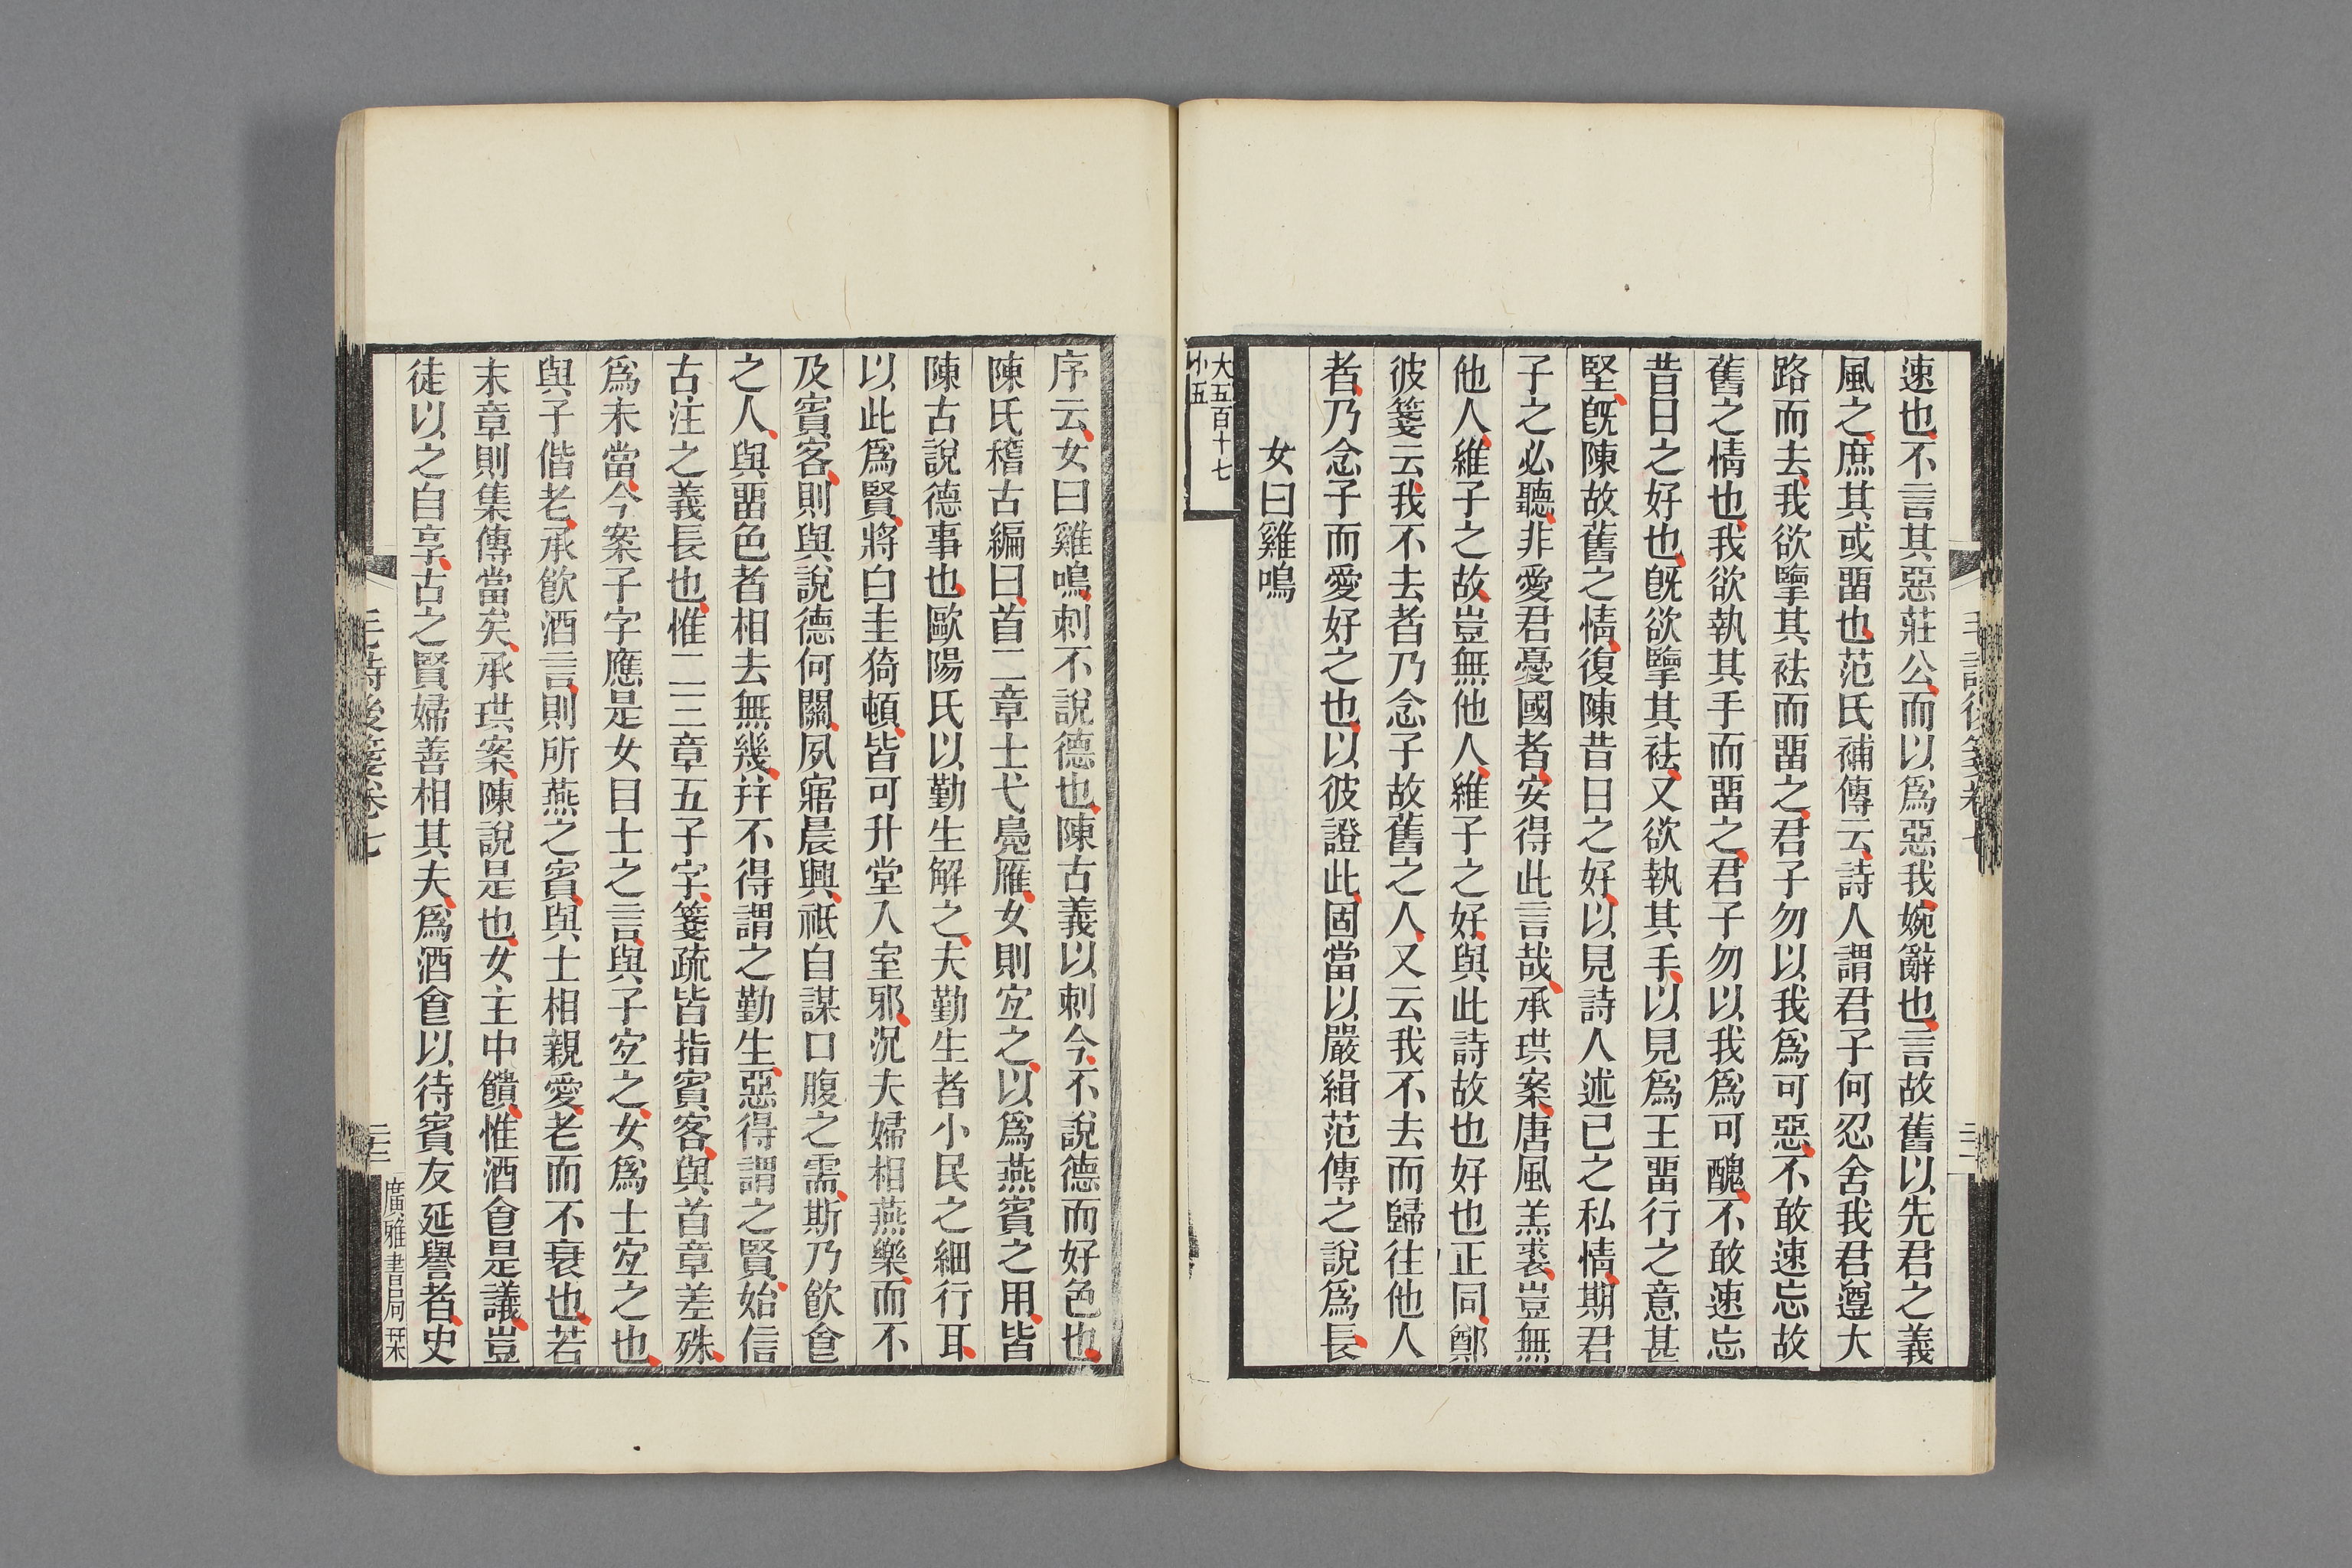 速也不言其惡莊公而以爲惡我婉辭也言故舊以先君之義
風之庶其或畱也范氏補傳云詩人謂君子何忍舍我君遵大
路而去我欲擥其袪而畱之君子勿以我爲可惡不敢速忘故
舊之情也我欲執其手而畱之君子勿以我爲可醜不敢速忘
昔日之好也旣欲擥其袪又欲執其手以見爲王畱行之意甚
堅旣陳故舊之情復陳昔日之好以見詩人述已之私情期君
子之必聽非愛君憂國者安得此言哉承珙案唐風羔裘豈無
他人維子之故豈無他人維子之好與此詩故也好也正同鄭
彼箋云我不去者乃念子故舊之人又云我不去而歸往他人
者乃念子而愛好之也以彼證此固當以嚴緝范傳之說爲長
女曰雞鳴
大五百十七
小五
序云女曰雞鳴刺不說德也陳古義以刺今不說德而好色也
陳氏稽古編曰首二章士弋鳧雁女則宐之以爲燕賓之用皆
陳古說德事也歐陽氏以勤生解之夫勤生者小民之細行耳
以此爲賢將白圭猗頓皆可升堂入室邪況夫婦相燕樂而不
及賓客則與說德何關夙寤晨興祇自謀口腹之需斯乃飮食
之人與畱色者相去無幾幷不得謂之勤生惡得謂之賢始信
古注之義長也惟二三章五子字箋疏皆指賓客與首章差殊
爲未當今案子字應是女目士之言與子宐之女爲士宐之也
與子偕老承飮酒言則所燕之賓與士相親愛老而不衰也若
末章則集傳當矣承珙案陳說是也女主中饋惟酒食是議豈
徒以之自享古之賢婦善相其夫爲酒食以待賓友延譽者史
毛詩後箋卷七
廣雅書局栞